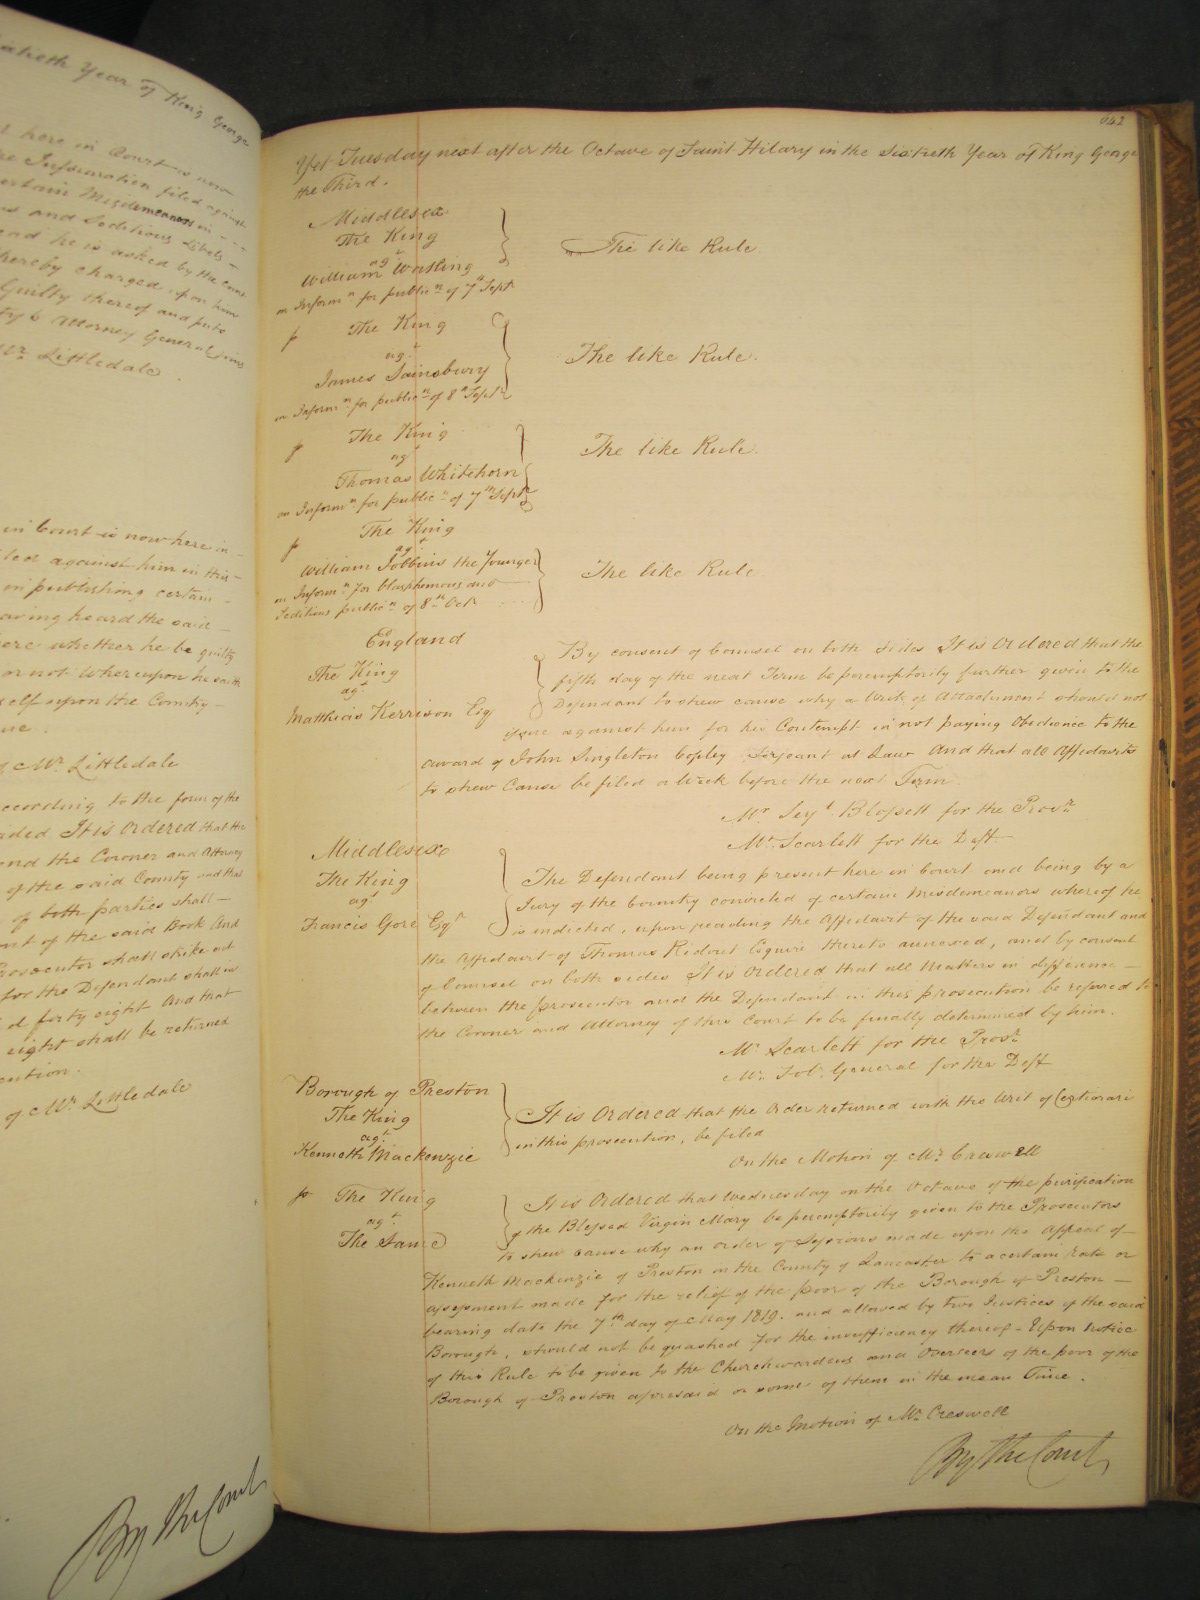 ixtieth Year of King George
here in Court is now
Information filed against
certain Misdemeanors in
and Seditious Libels
ead he is asked by the Court
hereby charged upon him
Guilty thereof and puts
Attorney General joins
Mr. Littledale.
in Court is now here in
against him in this
in publishing certain
aving heard the said
ere whether he be guilty
or not Whereupon he saith
self upon the Country
of Mr. Littledale
ccording to the form of the
ided It is Ordered that the
end the Coroner and Attorney
of the said County and that
of both parties shall
of the said Book And
Prosecutor shall strike out
for the Defendant shall in
d forty eight And that
eight shall be returned
cution.
of Mr. Littledale
By the Court
642
Yet Tuesday next after the Octave of Saint Hilary in the Sixtieth Year of King George
the Third.
Middlesex
The King
agt
William Watling
on Informn for publicn of 7th Sept
The like Rule
The King
agt
James Sainsbury
on Informn for publicn of 8th Sept
The like Rule.
The King
agt
Thomas Whitehorn
on Informn for publicn of 7th Sept
The like Rule.
The King
agt
William Tobbins the Younger
on Informn for blasphemous and
Seditious publicn of 8th Octr
The like Rule
England
The King
agt
Matthias Kerrison Esq
By consent of Counsel on both sides It is Ordered that the
fifth day of the next Term be peremptorily further given to the
Defendant to shew cause why a Writ of Attachment should not
issue against him for his Contempt in not paying Obedience to the
award of John Singleton Copley Serjeant at Law And that all Affidavits
to shew Cause be filed a Week before the next Term
Mr. Serjt. Blossett for the Prosr
Mr. Scarlett for the Deft.
Middlesex
The King
agt
Francis Gore Esqr
The Defendant being present here in Court and being by a
Jury of the Country convicted of certain Misdemeanors whereof he
is indicted, upon reading the Affidavit of the said Defendant and
the Affidavit of Thomas Ridout Esquire thereto annexed, and by consent
of Counsel on both sides It is Ordered that all Matters in difference
between the prosecutor and the Defendant in this prosecution be referred to
the Coroner and Attorney of this Court to be finally determined by him.
Mr. Scarlett for the Prosr
Mr. Solr. General for the Deft
Borough of Preston
The King
agt
Kenneth Mackenzie
It is Ordered that the Order returned with the Writ of Certiorari
in this prosecution, be filed
On the Motion of Mr. Creswell
The King
agt
The Same
It is Ordered that Wednesday on the Octave of the purification
of the Blessed Virgin Mary be peremptorily given to the Prosecutors
to shew cause why an Order of Sessions made upon the Appeal of
Kenneth Mackenzie of Preston in the County of Lancaster to a certain Rate or
assessment made for the relief of the poor of the Borough of Preston
bearing date the 7th day of May 1819. and allowed by two Justices of the said
Borough, should not be quashed for the insufficiency thereof - Upon Notice
of this Rule to be given to the Churchwardens and Overseers of the poor of the
Borough of Preston aforesaid or some of them in the mean Time.
On the Motion of Mr. Creswell
By the Court